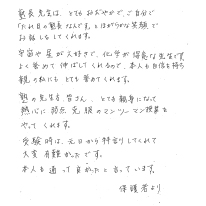 塾長先生は、とてもおだやかで、ご自分で
「たれ目の塾長なんです。」とほがらかな笑顔で
お話しをしてくれます。
宇宙や星が大好きで、化学が得意な先生です。
よく誉めて伸ばしてくれるので、本人も自信を持ち
親の私にもとても誉めてくれます。
塾の先生も、皆さん、とても親身になって
熱心に弱点克服のマンツーマン授業を
やってくれます。
受験時は、元日から特訓してくれて
大変有難かったです。
本人も通って良かったと言っています。
保護者より